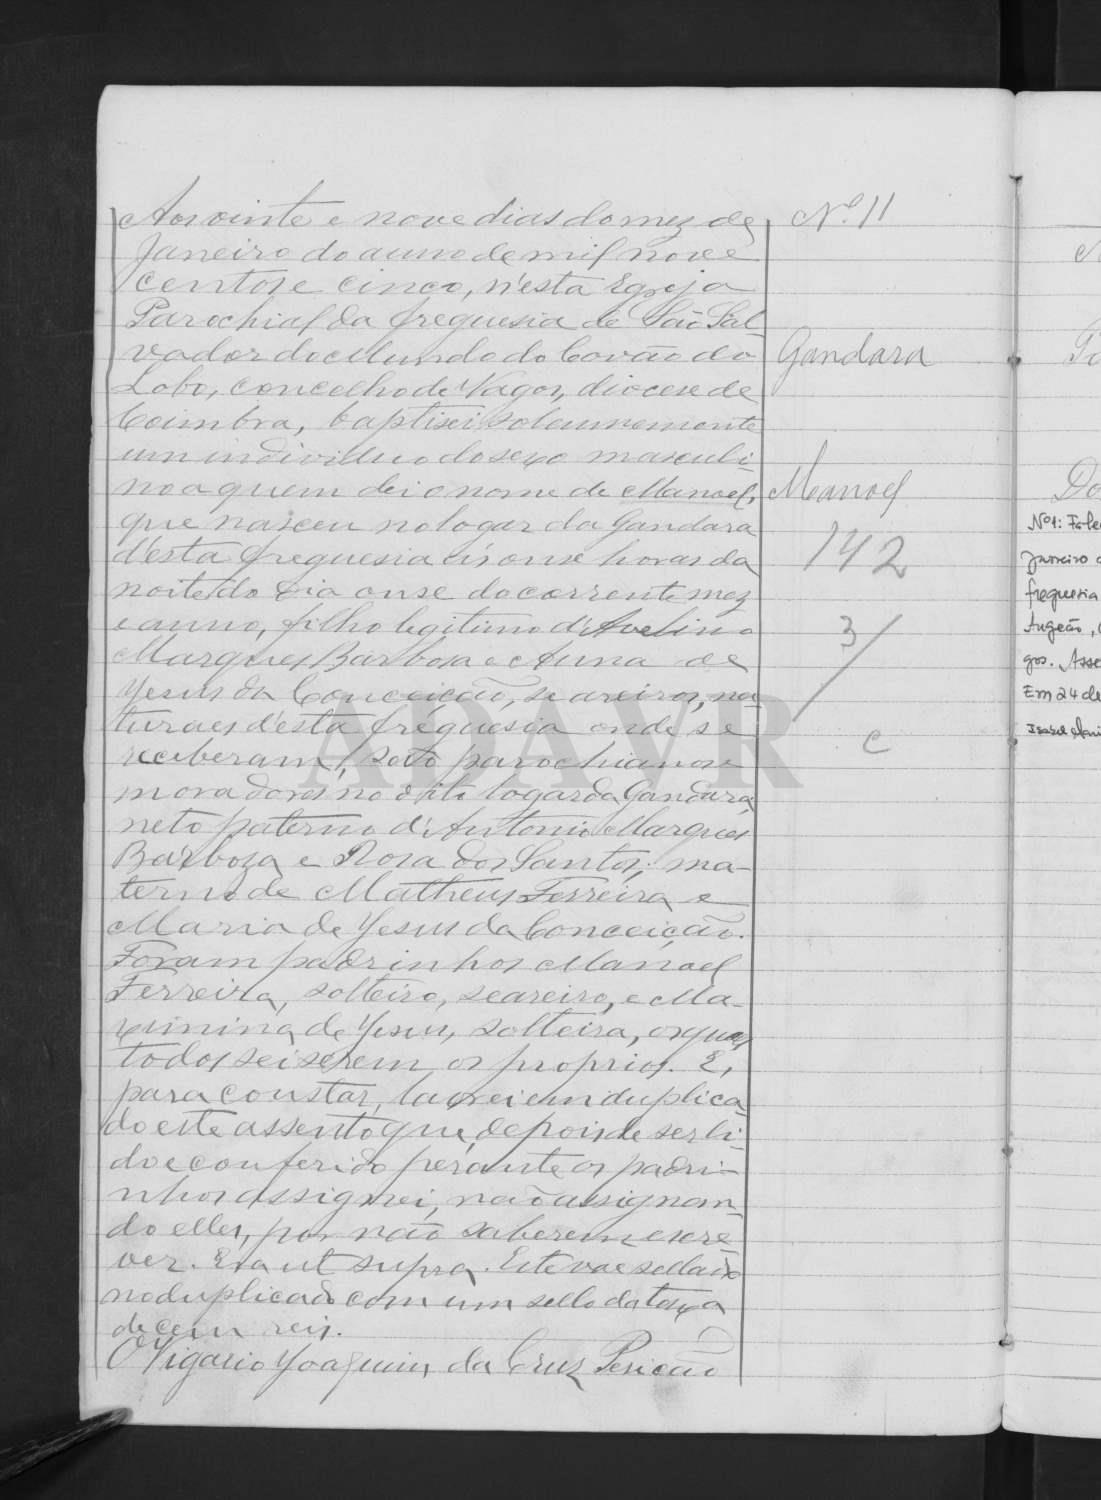 Nº 11
Gandara
Manoel
142
3
c
Aos vinte e nove dias do mez de
Janeiro do anno de mil nove
centos e cinco, n'esta Egreja
Parochial da freguesia de São Sal-
vador do Mundo do Covão do
Lobo, concelho de Vagos, diocese de
Coimbra, baptisei solemnemente
um individuo do sexo masculi-
no a quem dei o nome de Manoel,
que nasceu no logar da Gandara
d'esta freguesia ás onse horas da
noite do dia onse do corrente mez
e anno, filho legitimo d'Avelino
Marques Barbosa e Anna de
Jesus da Conceição, seareiros, na-
turaes d'esta freguesia onde se
receberam, são parochianos e
moradores no dito logar da Gandara,
neto paterno d'Antonio Marques
Barboza e Rosa dos Santos; ma-
terno de Matheus Ferreira e
Maria de Jesus da Conceição.
Foram padrinhos Manoel
Ferreira, solteiro, seareiro, e Ma-
ximina de Jesus, solteira, os quaes
todos sei serem os proprios. E,
para constar, lavrei em duplica-
do este assento que, depois de ser li-
do e conferido perante os padri-
nhos assignei, não assignan-
do elles, por não saberem escre-
ver. Era ut supra. Este vae sellado
no duplicado com um sello da taxa
de cem reis.
O Vigario Joaquim da Cruz Pericão
ADAVR
Do
Nº 1: Fale
Janeiro d
freguesia
Angeão, (
gos. Asse
Em 24 de
Isabel Mari